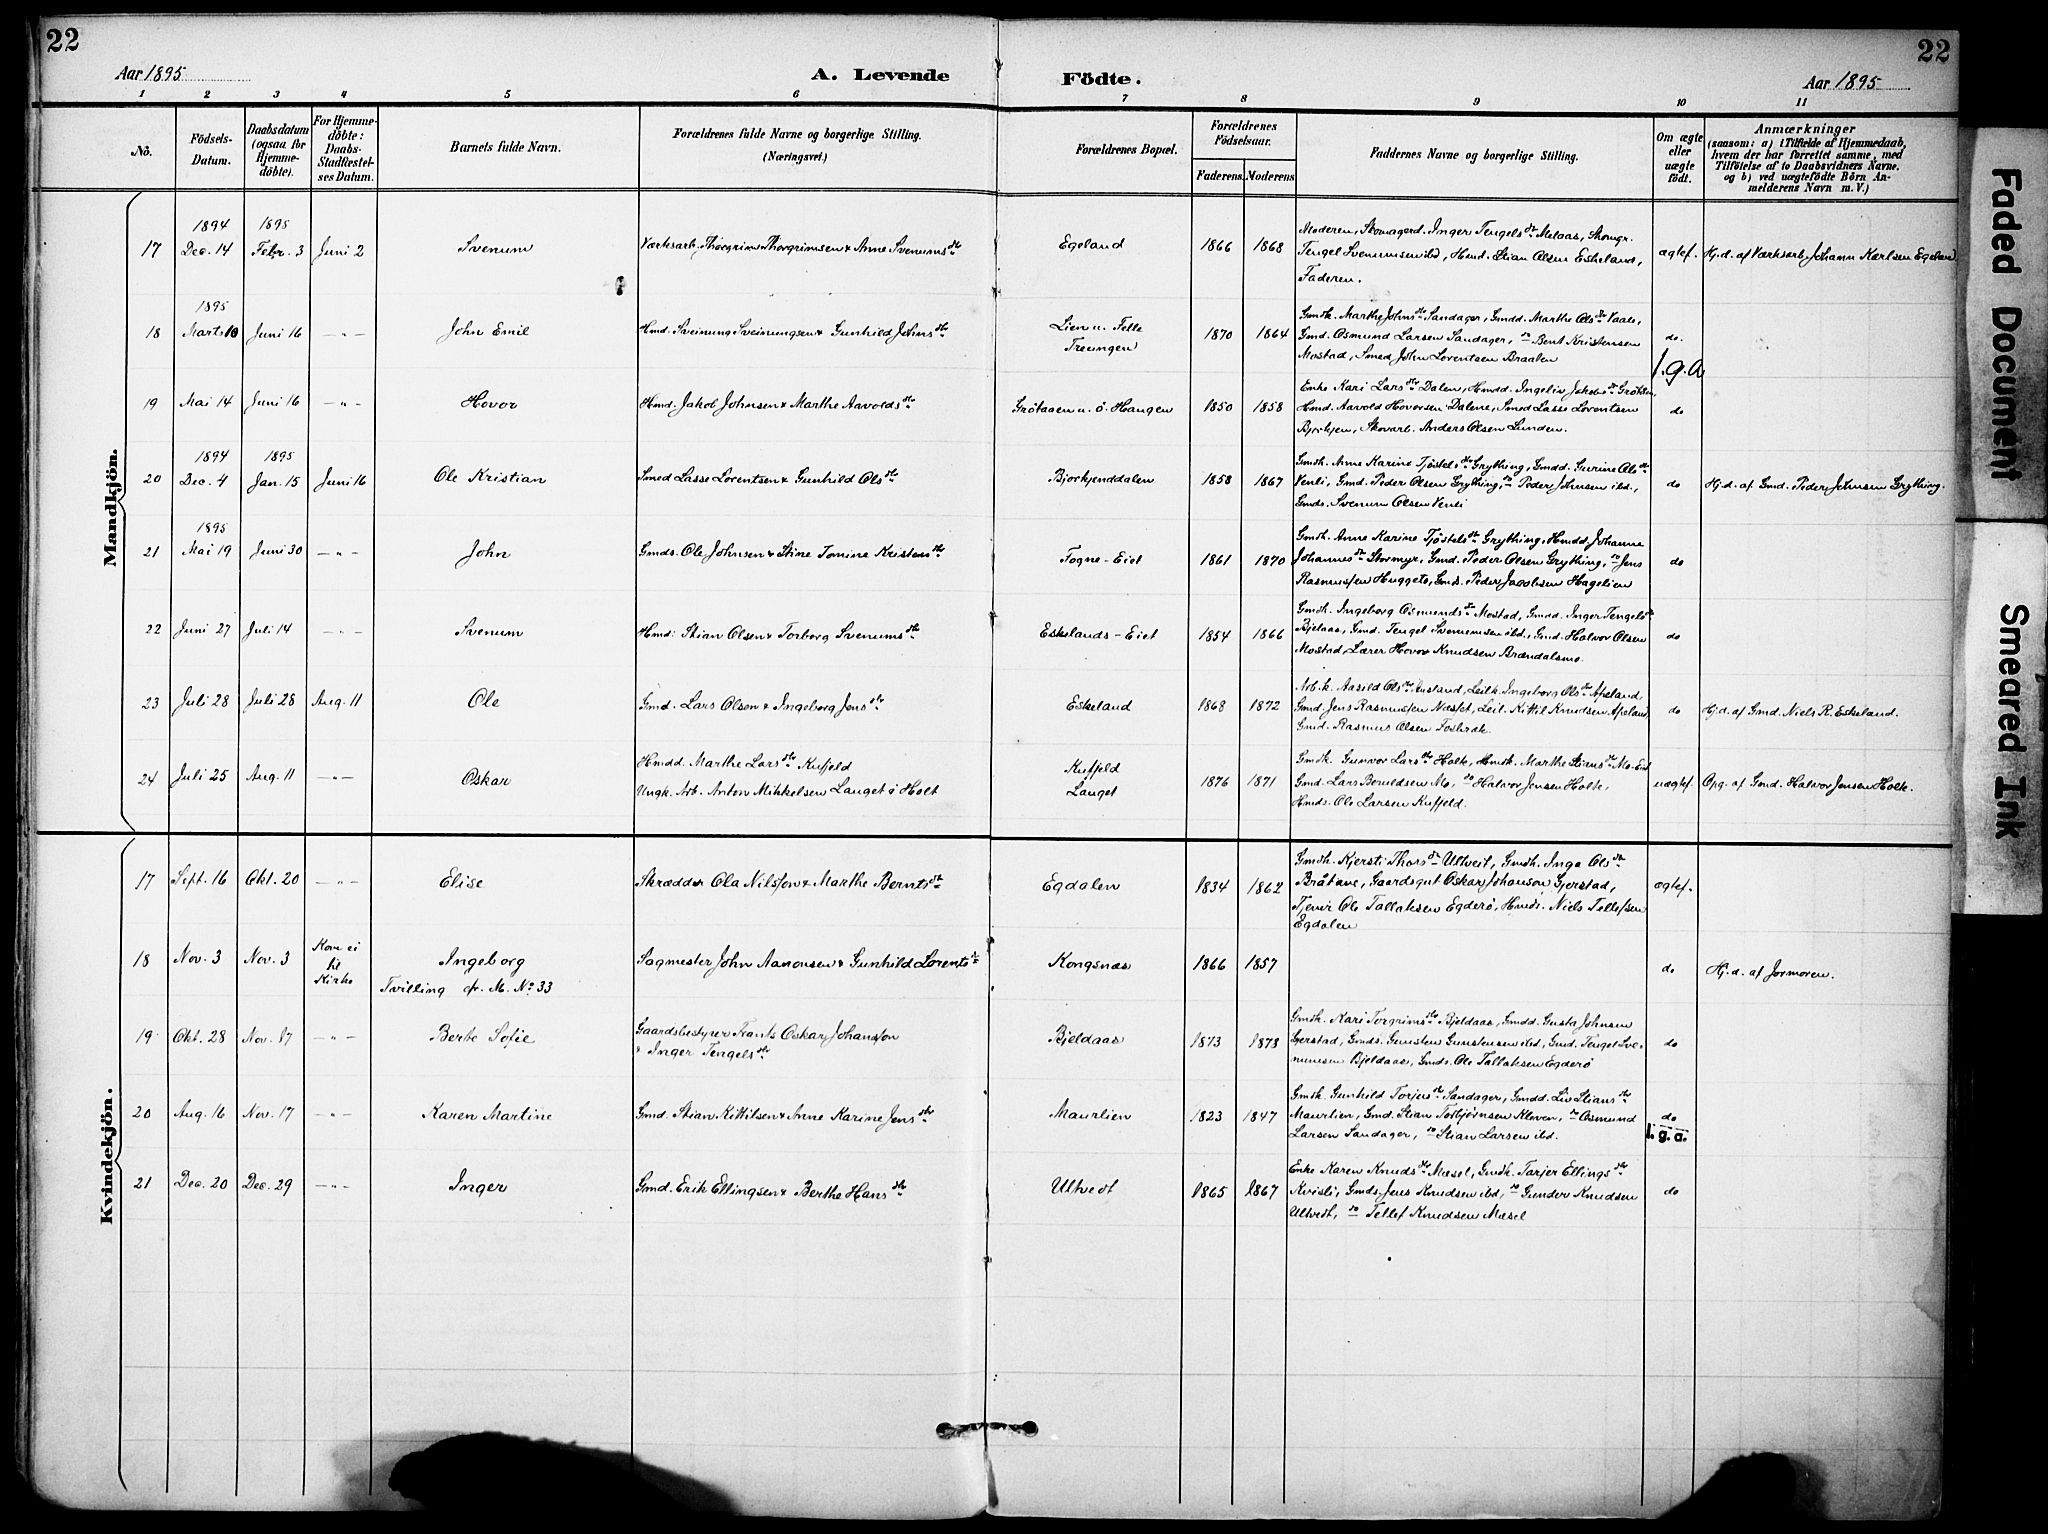 22
22
Aar 1895
A. Levende
Födte.
Aar 1895
1 2 3 4 5 6 7 8 9 10 11
No.
Födsels-
Datum.
Daabsdatum
(ogsaa for
Hjemme-
döbte).
For Hjemme-
döbte:
Daabs-
Stadfæstel-
ses Datum.
Barnets fulde Navn.
Forældrenes fulde Navne og borgerlige Stilling.
(Næringsvei.)
Forældrenes Bopæl.
Forældrenes
Födselsaar.
Faderens. Moderens
Faddernes Navne og borgerlige Stilling.
Om ægte
eller
uægte
födt.
Anmærkninger
(saasom: a) i Tilfælde af Hjemmedaab,
hvem der har forrettet samme, med
Tilföielse af to Daabsvidners Navne,
og b) ved uægtefödte Börn An-
melderens Navn m. V.)
Mandkjön.
1894 1895
17 Dec. 14 Febr. 3 Juni 2 Svenum Værksarb. Thorgrim Thorgrimsen & Anne Svenumsdtr Egeland 1866 1868
Moderen, Skomagerd. Inger Tengelsdtr Melaas, Skomgr.
Tengel Svenumsen ibd, Hmd. Stian Olsen Eskeland,
Faderen.
ægtef. Hj.d. af Værksarb. Johann Karlsen Egeland
1895
18 Marts 10 Juni 16 -"- John Emil Hmd. Sveinung Sveinungsen & Gunhild Johnsdtr Lien u. Felle
Treungen 1870 1864
Gmdk. Marthe Johnsdtr Sandager, Gmdd. Marthe Olsdtr Vaale,
Gmd. Osmund Larsen Sandager, do Bent Kristensen
Mostad, Smed John Lorentsen Braalen
do.
f.g.a
19 Mai 14 Juni 16 -"- Hovor Hmd. Jakob Johnsen & Marthe Aavoldsdtr Grötaaen u. ö. Haugen 1850 1858
Enke Kari Larsdtr Dalen, Hmdd. Ingeliv Jakobsdtr Gröttaen,
Hmd. Aavold Hovorsen Dalene, Smed Lasse Lorentsen
Bjorkjen, Skovarb. Anders Olsen Lunden.
do
1894 1895
20 Dec. 4 Jan. 15 Juni 16 Ole Kristian Smed Lasse Lorentsen & Gunhild Olsdtr Bjorkjenddalen 1858 1867
Gmdk. Anne Karine Tjöstelsdtr Grything, Gmdd. Gurine Olsdtr
Venli, Gmd. Peder Olsen Grything, do Peder Johnsen ibd.,
Gmds. Svenum Olsen Venli
do Hj.d. af Gmd. Peder Johnsen Grything.
1895
21 Mai 19 Juni 30 -"- John Gmds. Ole Johnsen & Stine Tomine Kristensdtr Fogne-Eiet 1861 1870
Gmdk. Anne Karine Tjöstelsdtr Grything, Hmdd. Johanne
Johannesdtr Stormyr, Gmd. Peder Olsen Grything, do Jens
Rasmussen Huggeto, Gmds. Peder Jacobsen Hagelien
do
22 Juni 27 Juli 14 -"- Svenum Hmd. Stian Olsen & Torborg Svenumsdtr Eskelands-Eiet 1854 1866
Gmdk. Ingeborg Osmundsdtr Mostad, Gmdd. Inger Tengelsdtr
Bjelaas, Gmd. Tengel Svenumsen ibd., Gmd. Halvor Olsen
Mostad, Lærer Hovor Knudsen Brændalsmo.
do
23 Juli 28 Juli 28 Aug. 11 Ole Gmd. Lars Olsen & Ingeborg Jensdtr Eskeland 1868 1872
Arb.k. Aasild Olsdtr Austand, Leilk. Ingeborg Olsdtr Apeland,
Gmd. Jens Rasmussen Næstet, Leil. Kittil Knudsen Apeland,
Gmd. Rasmus Olsen Fosbræk.
do Hj.d. af Gmd. Niels R. Eskeland.
24 Juli 25 Aug. 11 -"- Oskar Hmdd. Marthe Larsdtr Kufjeld
Ungk. Arb. Anton Mikkelsen Lauget i Holt
Kufjeld
Lauget 1876 1871
Gmdk. Gunvor Larsdtr Holte, Hmdk. Marthe Stiansdtr Mo-Eiet
Gmd. Lars Bouldsen Mo, do Halvor Jensen Holte,
Hmds. Ole Larsen Kufjeld.
uægtef. Opg. af Gmd. Halvor Jensen Holte.
Kvindekjön.
17 Sept. 16 Okt. 20 -"- Elise Skrædder Ola Nilsson & Marthe Berntsdtr Egdalen 1834 1862
Gmdk. Kjersti Thorsdtr Ultveit, Gmdk. Inga Olsdtr
Bråtane, Gaardsgut Oskar Johanson Gjerstad,
Tjener Ole Tallaksen Egderö, Hmds. Niels Tellefsen
Egdalen
ægtef.
18 Nov. 3 Nov. 3 Kom ei
til
Kirke
Ingeborg
Tvilling cfr. M. No 33
Sagmester John Aanonsen & Gunhild Lorentsdtr Kongsnæs 1866 1857
do Hj.d. af Jormoren.
19 Okt. 28 Nov. 17 -"- Berte Sofie Gaardsbestyrer Frants Oskar Johansson
& Inger Tengelsdtr
Bjeldaas 1873 1878
Gmdk. Kari Torgrimsdtr Bjeldaas, Gmdd. Gusta Johnsen
Gjerstad, Gmds. Gunsten Gunstensen ibd, Gmd. Tengel Sve-
numsen Bjeldaas, Gmds. Ole Tallaksen Egderö
do
20 Aug. 16 Nov. 17 -"- Karen Martine Gmd. Stian Kittilsen & Anne Karine Jensdtr Maurlien 1823 1847
Gmdk. Gunhild Torjusdtr Sandager, Gmdd. Liv Stiansdtr
Maurlien, Gmd. Stian Torbjørnsen Kleven, do Osmund
Larsen Sandager, do Stian Larsen ibd.
do
f.g.a.
21 Dec. 20 Dec. 29 -"- Inger Gmd. Erik Ellingsen & Berthe Hansdtr Ultvedt 1865 1867
Enke Karen Knudsdtr Mæsel, Gmdk. Tarjer Ellingsdtr
Kvisli, Gmds. Jens Knudsen ibd, do Gunder Knudsen
Ultvedt, do Tellef Knudsen Mæsel
do
Faded Document
Smeared Ink